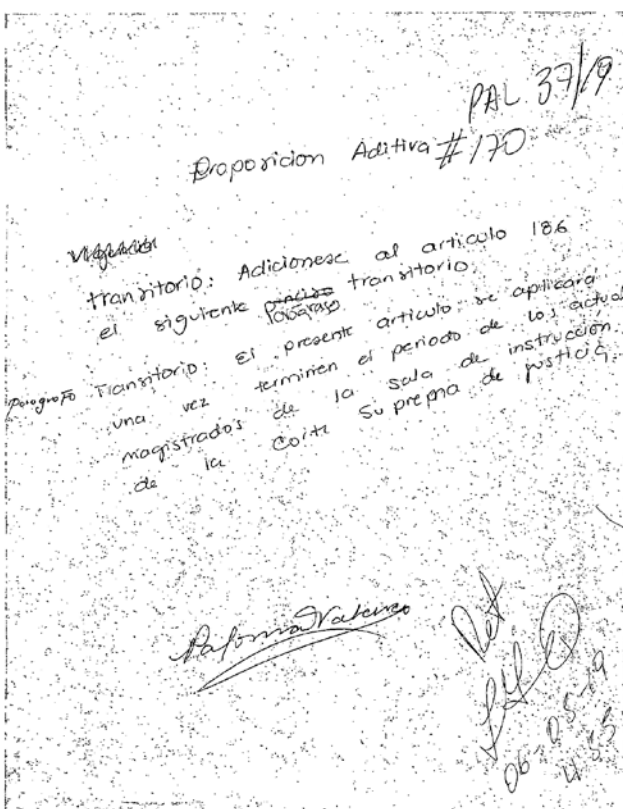 PAL 37/19
Proposicion Aditiva #170
transitorio: Adicionese al articulo 186
el siguiente parágrafo transitorio.
Paragrafo Transitorio: El presente articulo se aplicará
una vez terminen el periodo de los actual
magistrados de la sala de instrucción
de la Corte Suprema de justicia.
Paloma Valencia
06-05-19
4:55